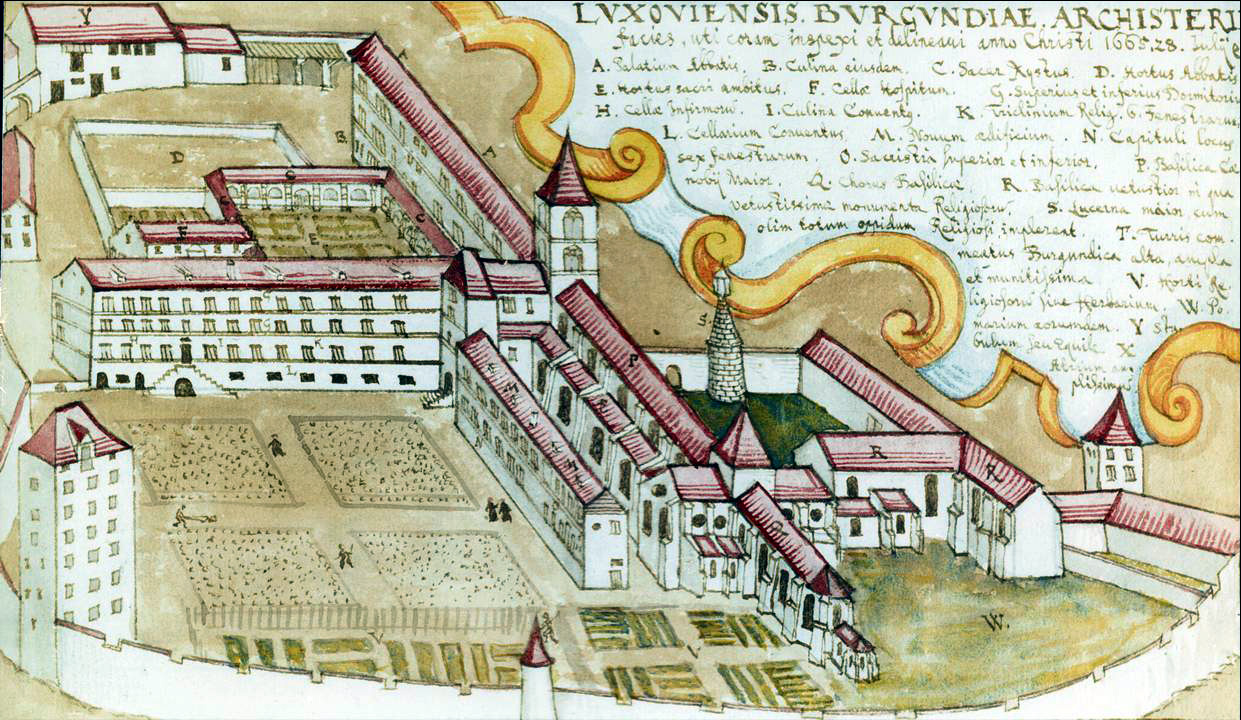 LVXOVIENSIS. BVRGVNDIAE. ARCHISTERI
facies, uti coram inspexi et delineavi anno Christi 1665. 28. Iulij
A. Palatium Abbatis. B. Culina eiusdem. C. Sacer Xystus. D. Hortus Abbatis
E. Hortus sacri ambitus. F. Cellæ Hospitum. G. Superius et inferius Dormitoriū
H. Cellæ Infirmorū. I. Culina Conventꝰ. K. Triclinium Relig. 6. Fenestrarum
L. Cellarium Conventus. M. Novum ædificium. N. Capituli locus
sex fenestrarum. O. Sacristia superior et inferior. P. Basilica Cœ
nobij Maior. Q. Chorus Basilicæ. R. Basilica vetustior in qua
vetustissima monumenta Religiosorū. S. Lucerna maior, cum
olim totum oppidum Religiosi implerent. T. Turris com
meatus Burgundica alta, ampla
et munitissima. V. Horti Re
ligiosorū sive Herbarium. W. Po
marium eorumdem. Y Sta
bulum seu Equile. X
Atrium am
plissimū
Y
A
B
D
G
C
E
F
C
G
G
H
I
K
L
S
P
R
R
Q
W.
V